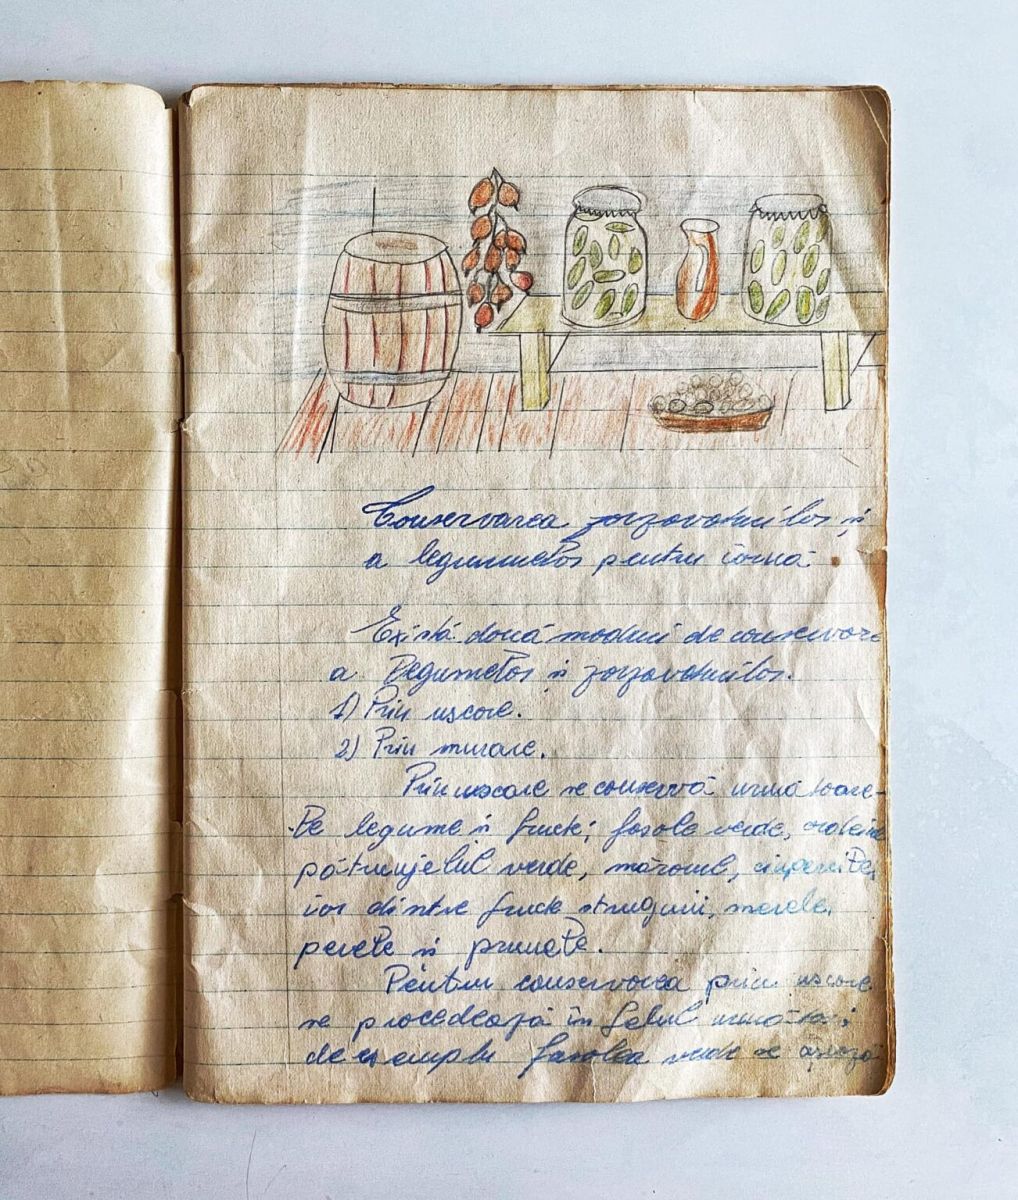 Conservarea zarzavaturilor și
a legumelor pentru iarnă
Există două moduri de conservare
a legumelor și zarzavaturilor.
1) Prin uscare.
2) Prin murare.
Prin uscare se conservă următoare-
le legume și fructe; fasole verde,
pătrunjelul verde, mărarul, ciupercile,
iar dintre fructe struguri, merele,
perele și prunele.
Pentru conservarea prin uscare
se procedează în felul următor;
de exemplu fasolea verde se așează